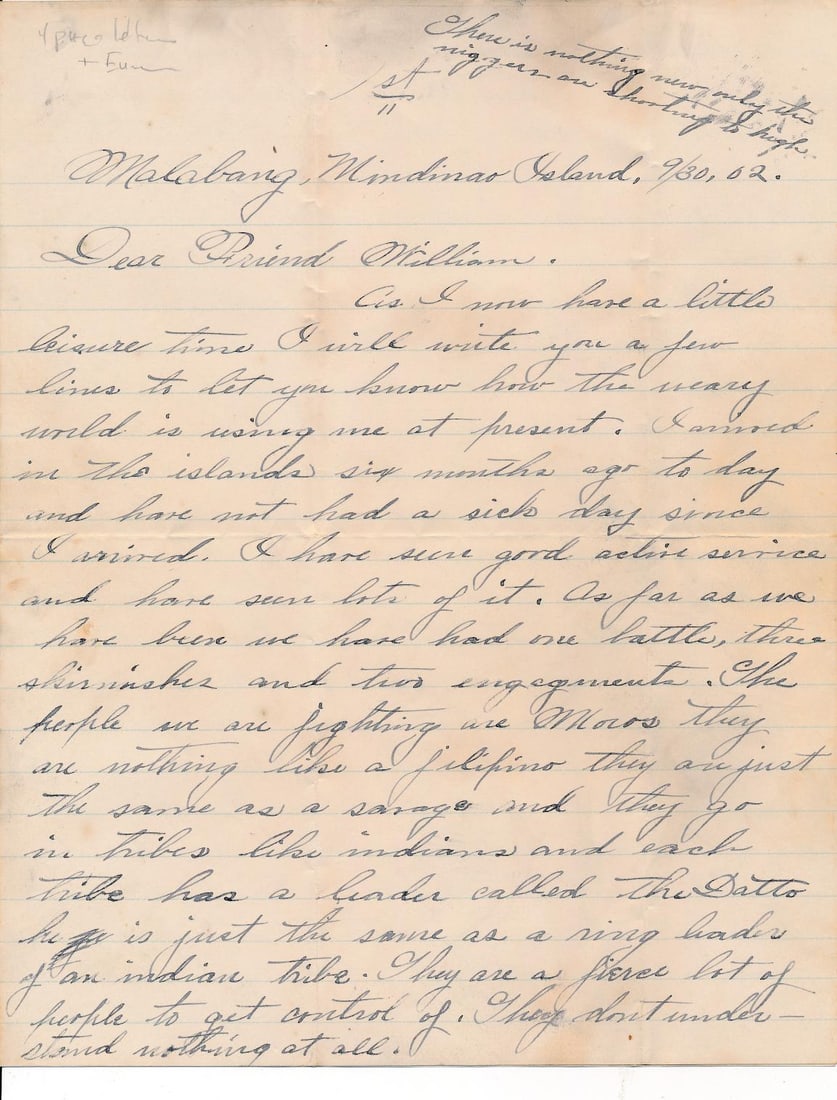 4 page letter
There is nothing new only the
niggers are shooting to high.
1st
11
Malabang, Mindinao Island, 9/30, 02.
Dear Friend William.
As I now have a little
leisure time I will write you a few
lines to let you know how the weary
world is using me at present. I arrived
in the islands six months ago to day
and have not had a sick day since
I arrived. I have seen good active service
and have seen lots of it. As far as we
have been we have had one battle, three
skirmishes and two engagements. The
people we are fighting are Moros they
are nothing like a filipino they are just
the same as a savage and they go
in tribes like indians and each
tribe has a leader called the Datto
he is just the same as a ring leader
of an indian tribe. They are a fierce lot of
people to get control of. They dont under-
stand nothing at all.